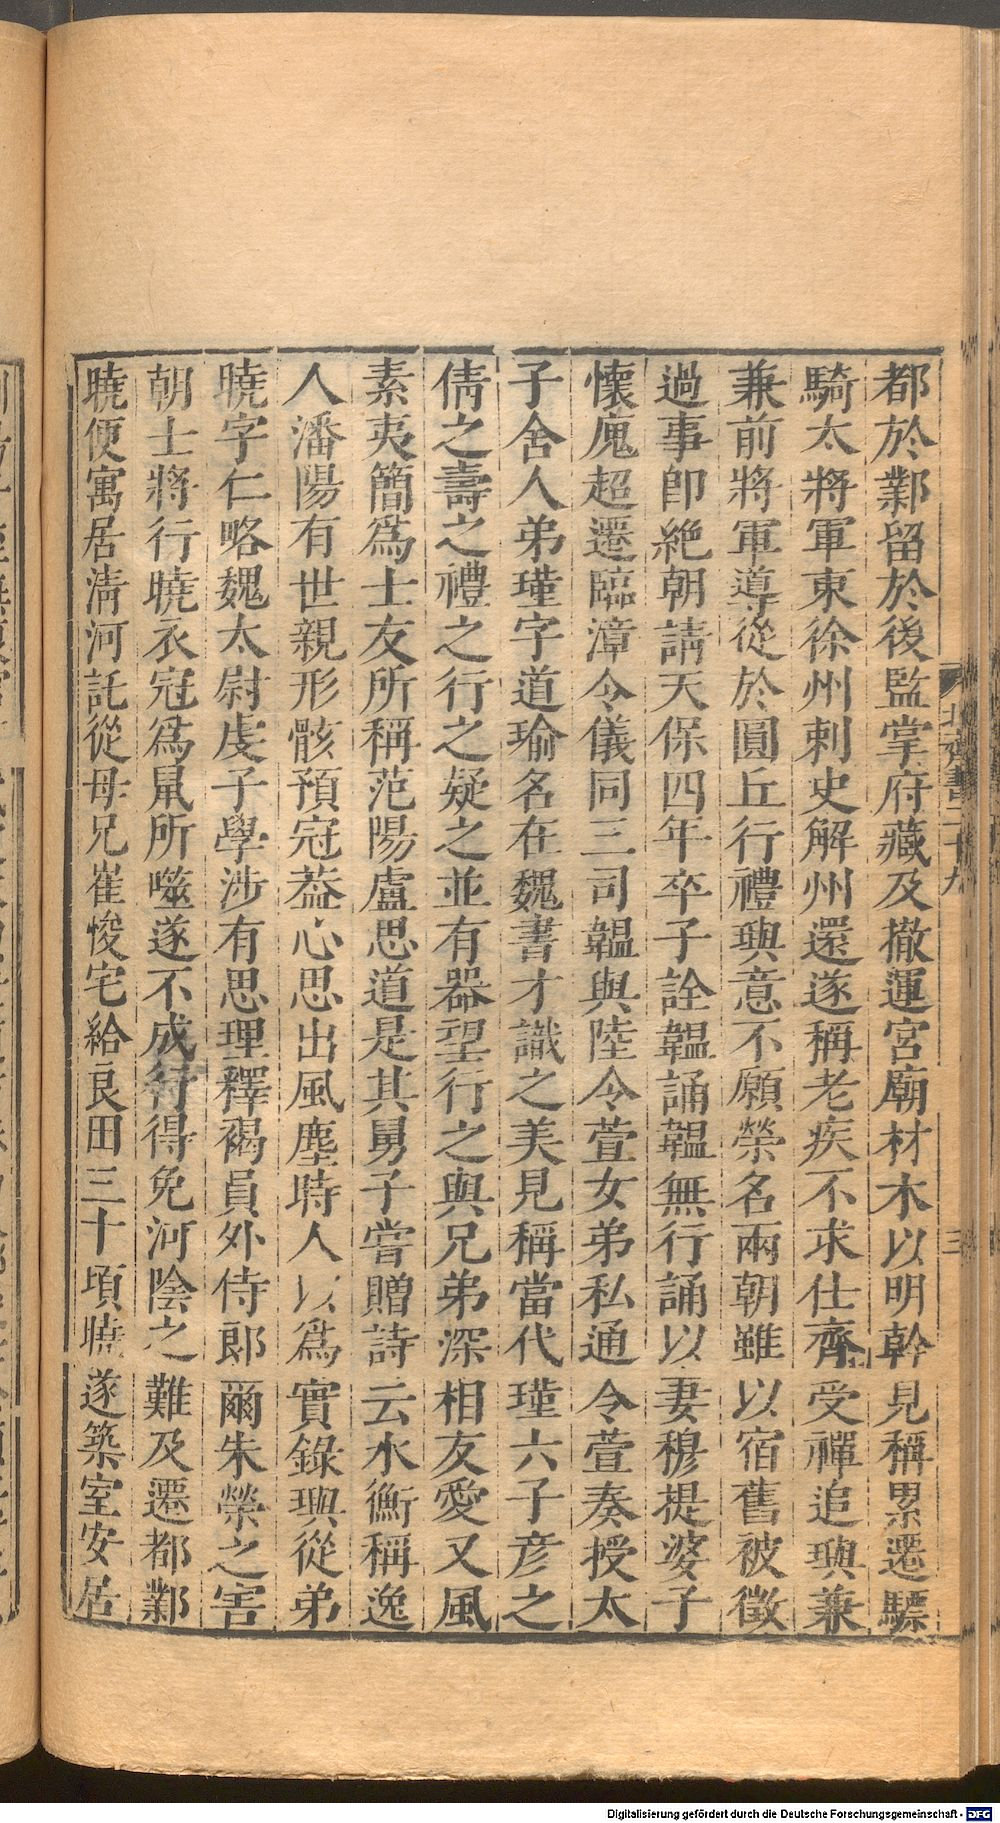 都於鄴留於後監掌府藏及撤運宮廟材木以明幹見稱累遷驃
騎大將軍東徐州刺史解州還遂稱老疾不求仕齊受禪追璵兼
兼前將軍導從於圓丘行禮璵意不願榮名兩朝雖以宿舊被徵
過事卽絕朝請天保四年卒子詮韞誦韞無行誦以妻穆提婆子
懷廆超遷臨漳令儀同三司韞與陸令萱女弟私通令萱奏授太
子舍人弟瑾字道瑜名在魏書才識之美見稱當代瑾六子彦之
倩之壽之禮之行之疑之並有器望行之與兄弟深相友愛又風
素夷簡爲士友所稱范陽盧思道是其舅子嘗贈詩云水衡稱逸
人潘陽有世親形骸預冠葢心思出風塵時人以爲實錄璵從弟
曉字仁略魏太尉虔子學涉有思理釋褐員外侍郎爾朱榮之害
朝士將行曉衣冠爲鼠所噬遂不成行得免河陰之難及遷都鄴
曉便寓居淸河託從母兄崔㥄宅給良田三十頃曉遂築室安居
北齊書二十九
三
Digitalisierung gefördert durch die Deutsche Forschungsgemeinschaft - DFG